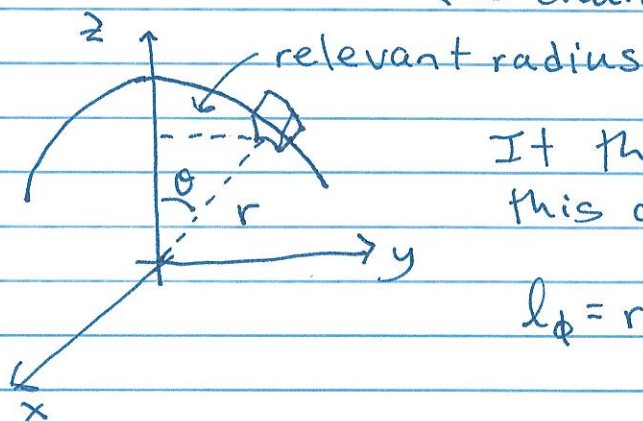 z
relevant radius
It th
this
θ
r
y
lϕ = r
x